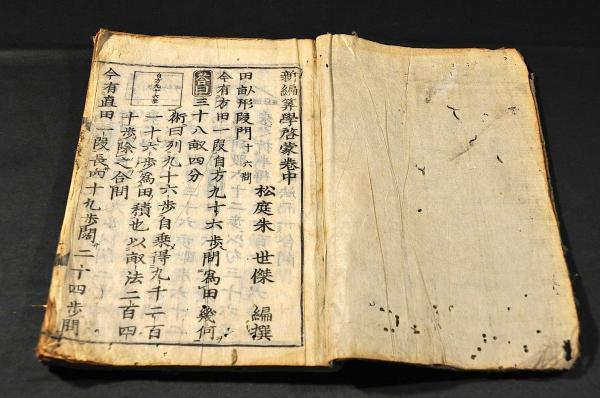 新編算學啓蒙卷中
松庭朱 世傑 編撰
田畝形段門 十六問
今有方田一段自方九十六步問爲田幾何
答曰 三十八畝四分
術曰列九十六步自乘得九千二百
一十六步爲田積也以畝法二百四
十步除之合問
自方九十六步
今有直田一段長四十九步闊二十四步問